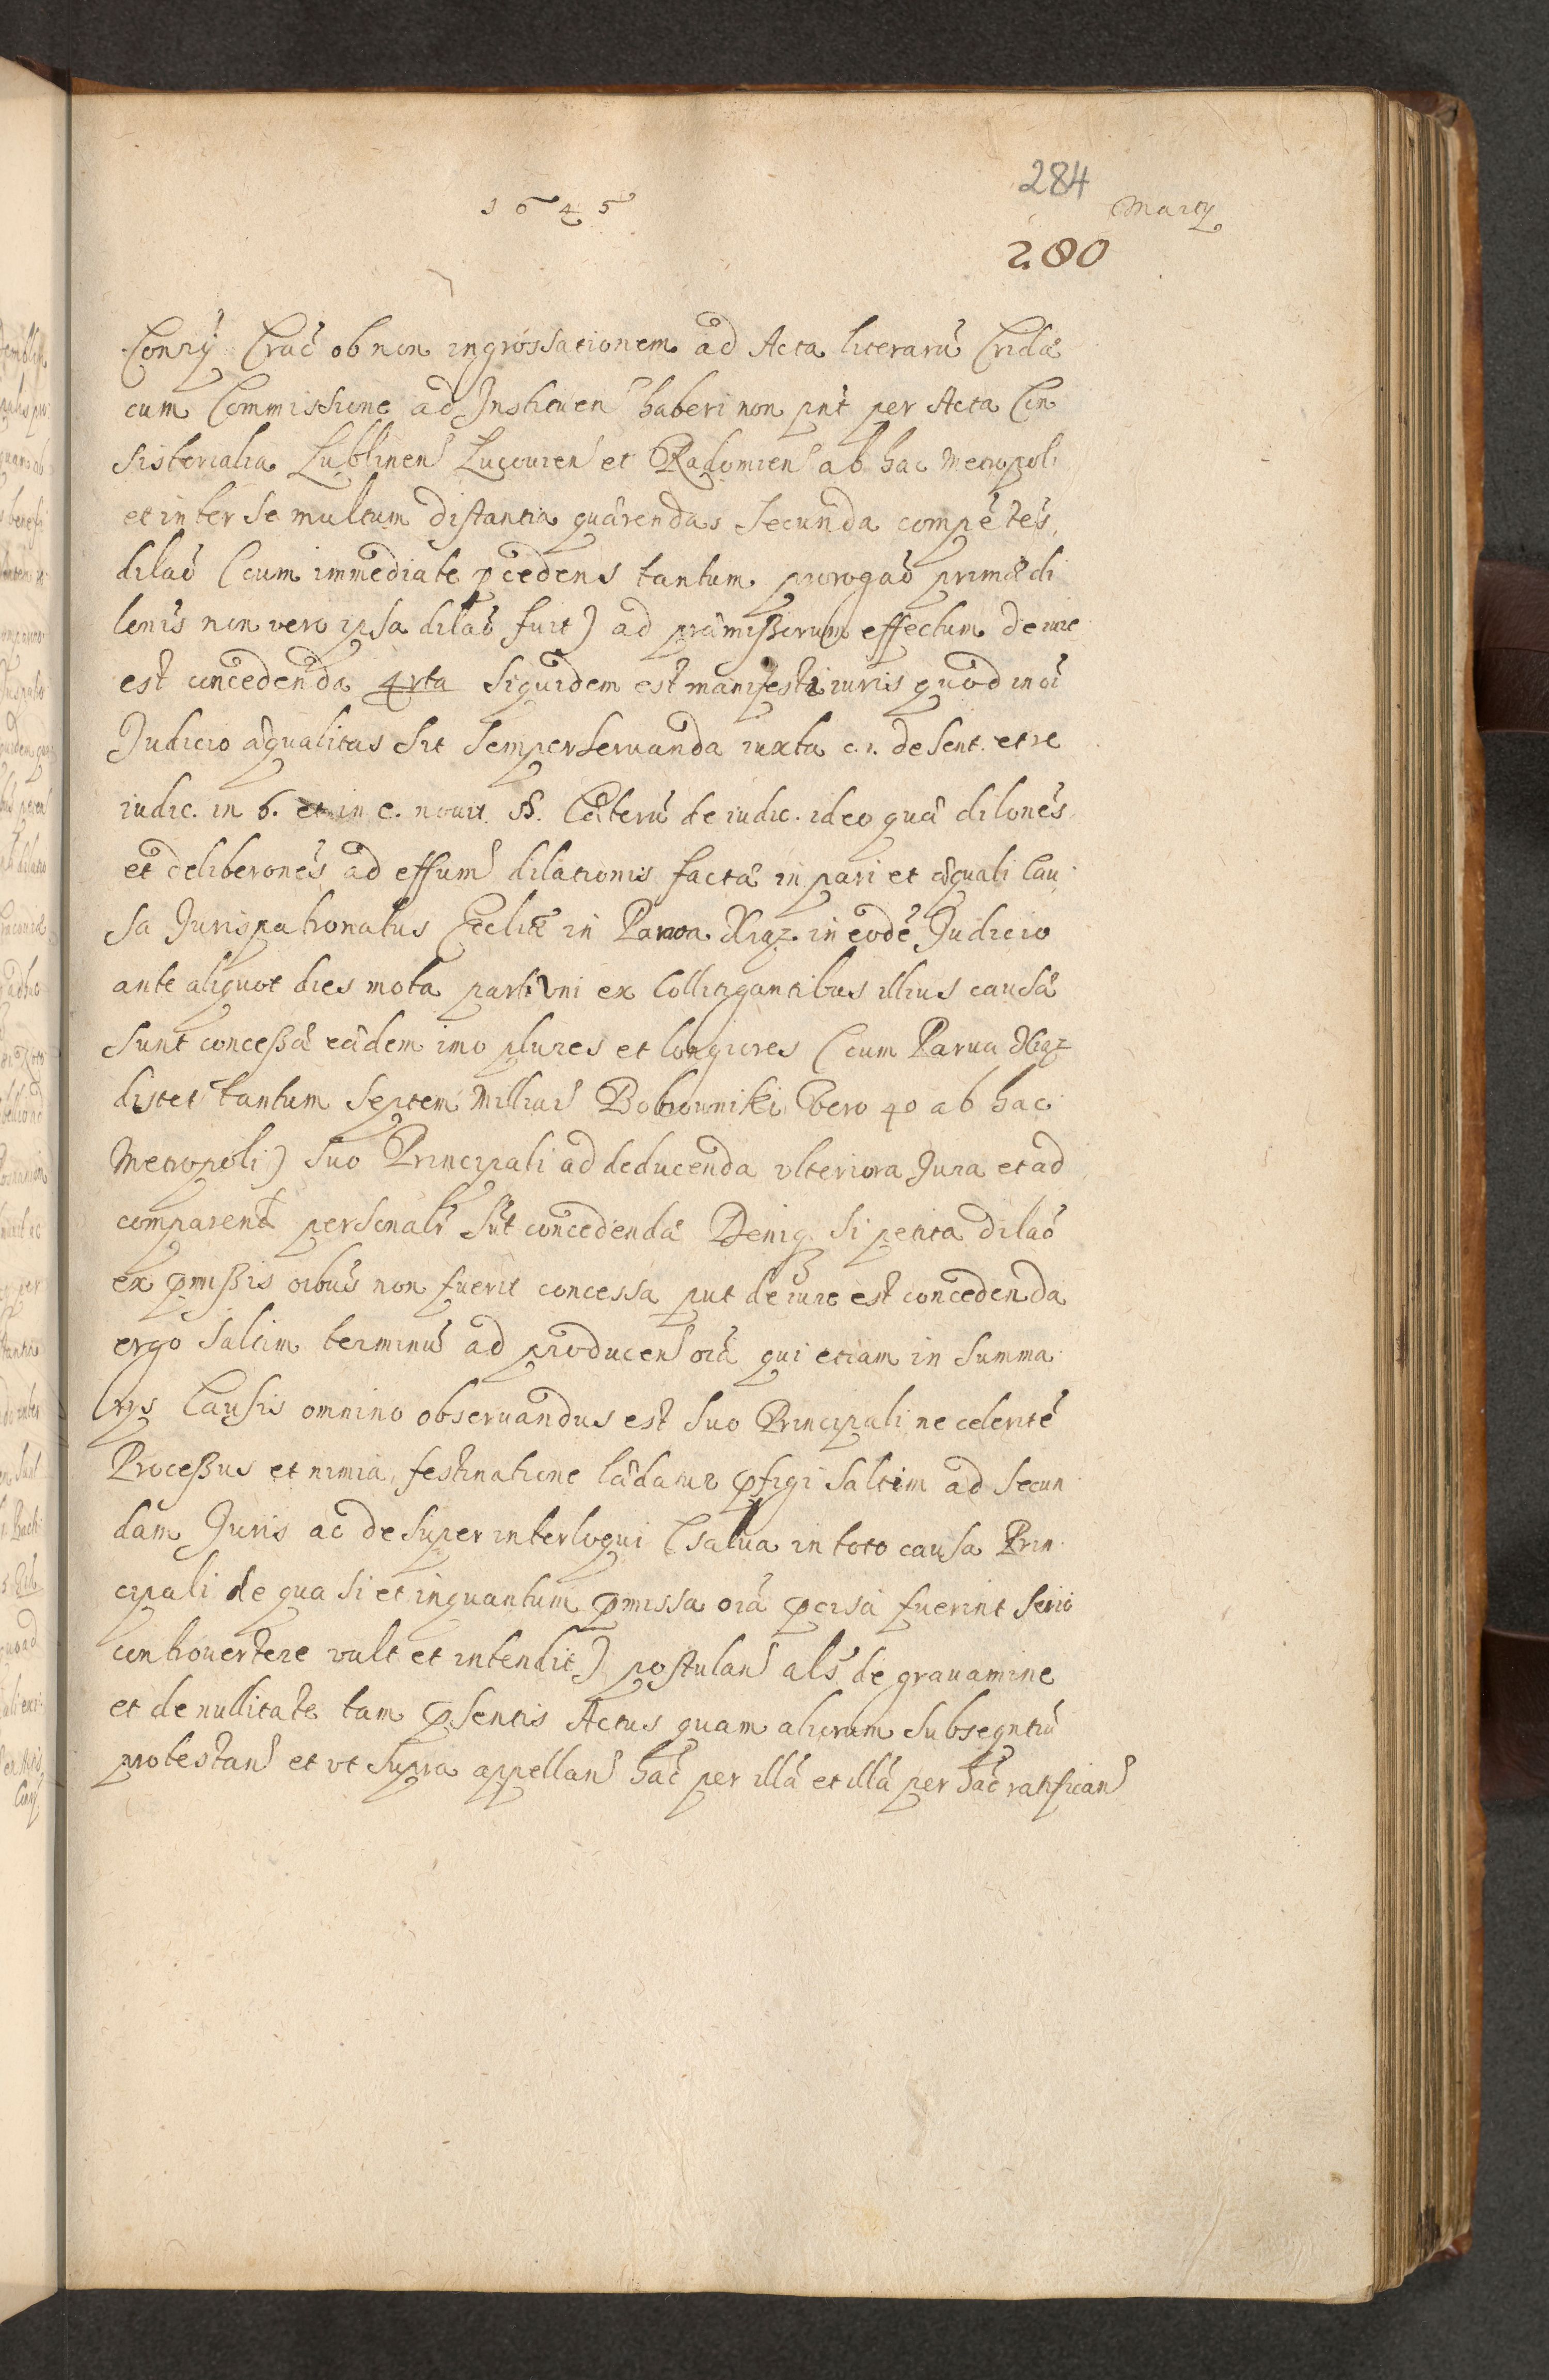 284
1645 Martij
280
Consrij Crac̄ ob non ingrossationem ad Acta literarū Cridæ
cum Commissione ad Instituen haberi non pn̄t per Acta Con
sistorialia Lublinen Lucouien et Radomien ab hac Metropoli
et inter se multum distantia quærendas secunda competēs
dilaō (cum immediate pcedens tantum prorogaō primæ di
lonis non vero ipsa dilaō fuit) ad præmißorum effectum de iure
est concedenda 4rta Siquidem est manifesti iuris quod in oī
Judicio æqualitas sit semper seruanda iuxta c. 1. de sent. et re
iudic. in 6. et in c. nouit §. Cæterū de iudic. ideo quæ dilonēs
et deliberonēs ad effum dilationis factæ in pari et æquali Cau
sa Jurispatronatus Eccliæ in Parua Xiąz. in eodē Judicio
ante aliquot dies mota parti vni ex Collitigantibus illius causæ
sunt conceßæ eædem imo plures et longiores (cum Parua Xiąz
distet tantum septem Milliar Bobrowniki vero 40 ab hac
Metropoli) suo Principali ad deducenda vlteriora Jura et ad
comparend personalr sūt concedendæ Deniq si petita dilaō
ex pmißis oībus non fuerit concessa put de iure est concedenda
ergo saltim terminū ad producen oīa qui etiam in summa
rijs Causis omnino obseruandus est suo Principali ne celeritē
Proceßus et nimia festinatione lædatur pfigi saltim ad secun
dam Juris ac desuper interloqui (salua in toto causa Prin
cipali de qua si et inquantum pmissa oīa pcisa fuerint serio
controuertere vult et intendit) postulan als de grauamine
et de nullitate tam psentis Actus quam aliorum subseqntiū
protestan et vt supra appellan hāc per illā et illā per hāc ratifican